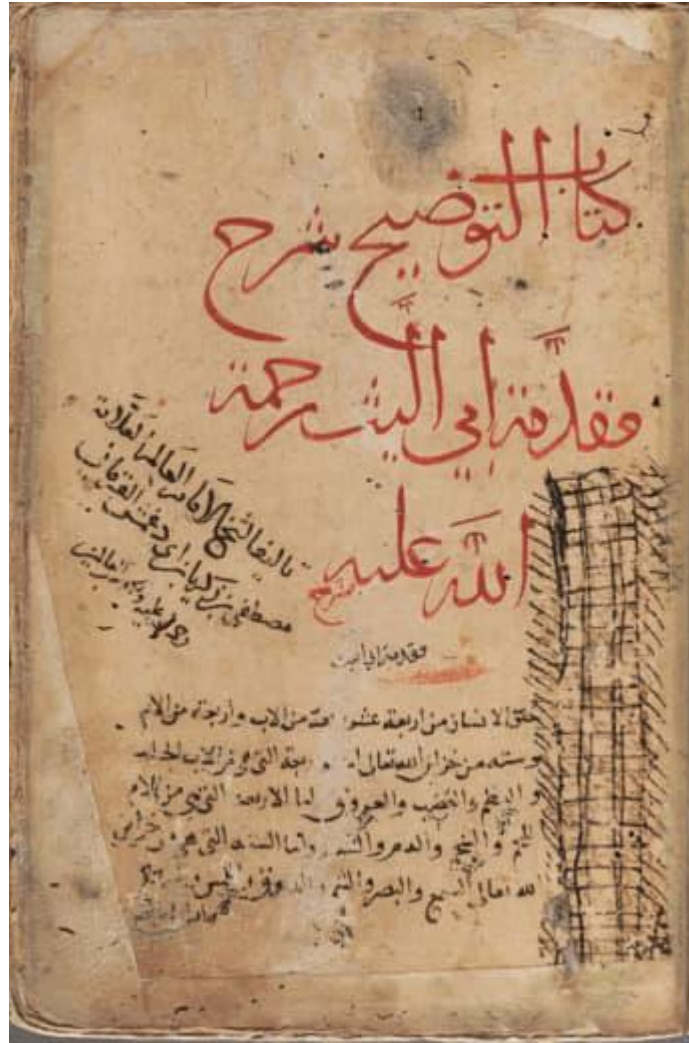 كتاب التوضيح شرح
مقدَّمة ابي الليث رحمة
اللّه عليه
تاليف الشيخ الامام العالم العلَّامة
مصطفى بن زكريا بن اي دغمش القرماني
مقدمة ابي الليث
خلق الانسان من اربعة عشر اربعة من الاب واربعة من الام
وستة من خزاين الله تعالى اما اربعة التي هي من الاب الجلد
والعظم والعصب والعروق اما الاربعة التي هي من الام
اللحم والدم والشعر واما الستة التي هي من خزاين
الله تعالى السمع والبصر والشم والذوق واللمس